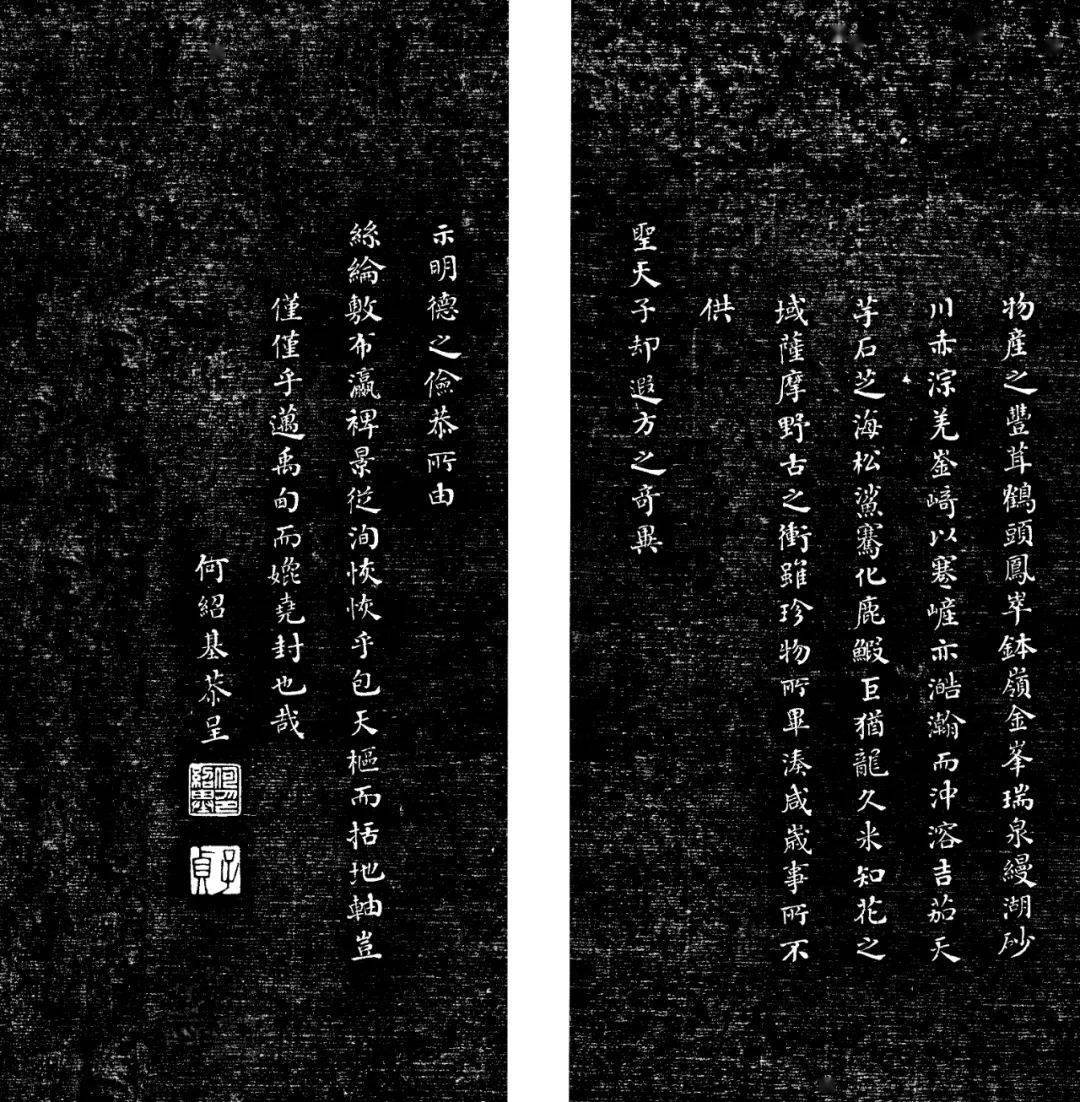 物產之豐茸鶴頭鳳崒鉢嶺金峯瑞泉縵湖砂
川赤淙羌崟﨑以蹇嵼亦澔瀚而沖溶吉茄天
芋石芝海松鯊騫化鹿鰕巨猶龍久米知花之
域薩摩野古之衝雖珍物所畢湊咸歲事所不
供
聖天子却遐方之奇異
示明德之儉恭所由
絲綸敷布瀛裨景從洵恢恢乎包天樞而括地軸豈
僅僅乎邁禹甸而媲堯封也哉
何紹基恭呈
何紹基
子貞